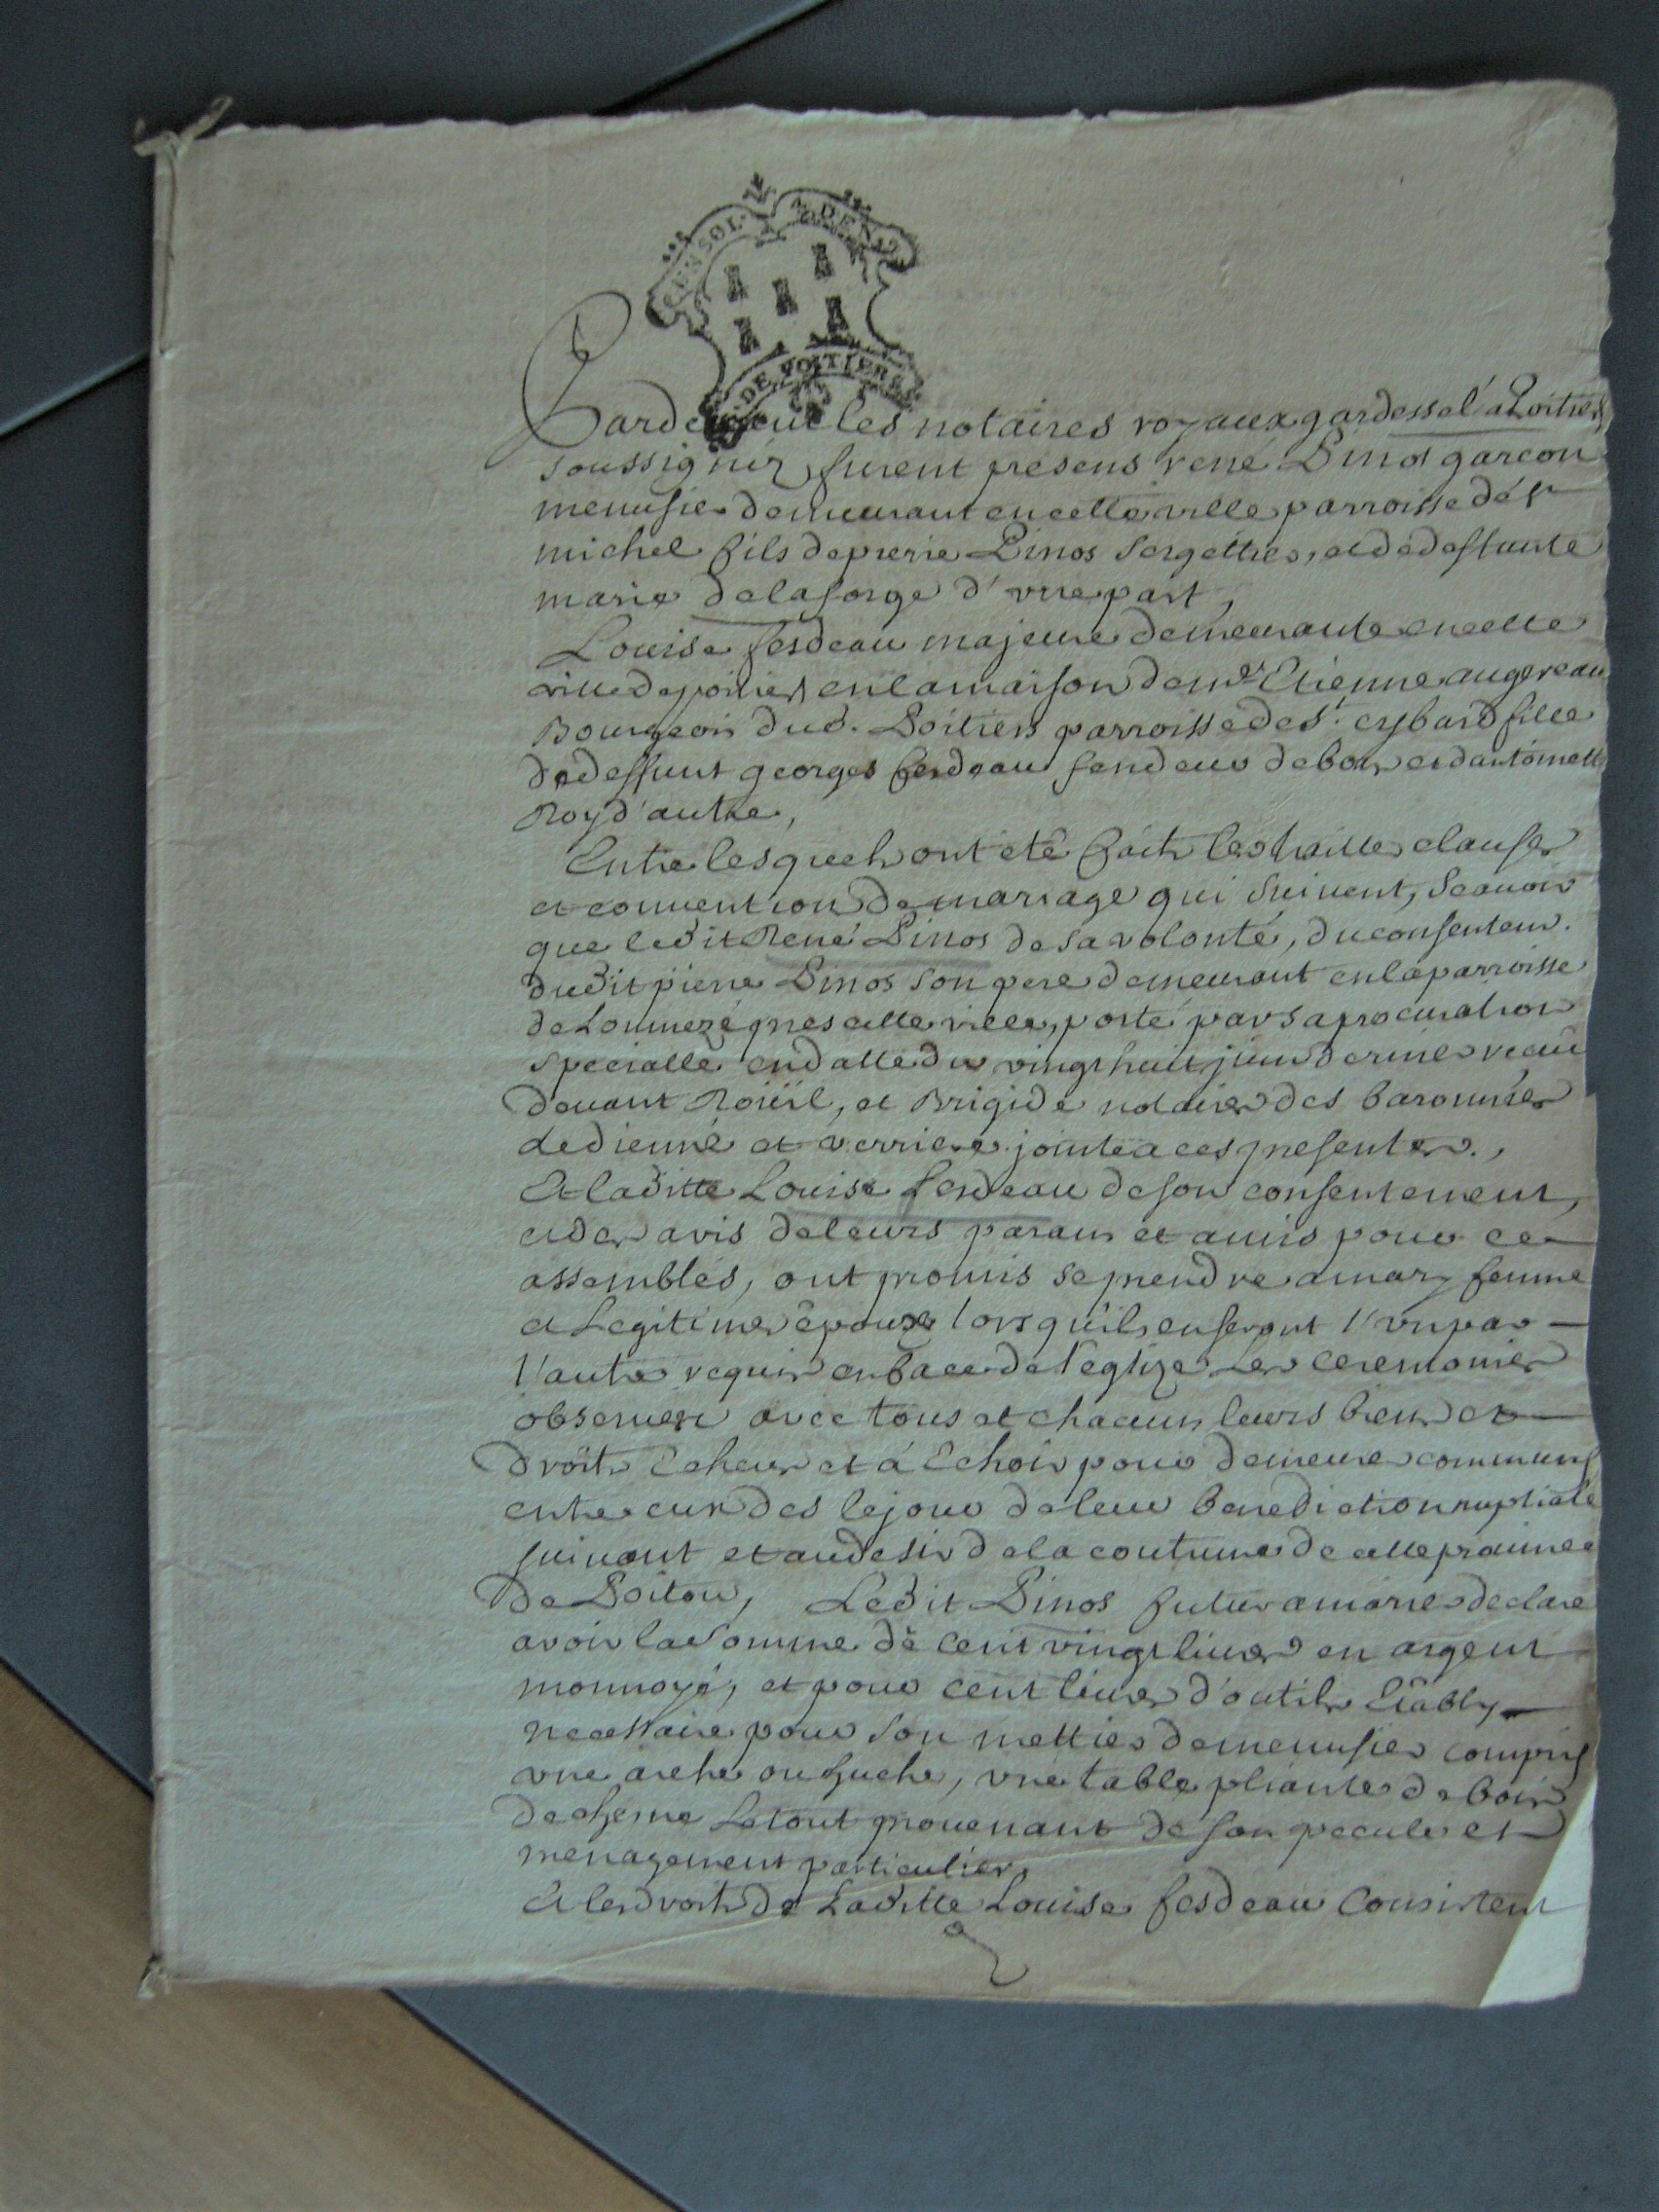 GEN. DE POITIERS
Pardevant les notaires royaux gardessel a Poitiers
soussignéz furent presens rené Pinos garcon
menusier demeurant en cette ville parroisse de st
michel fils de pierre Pinos sergettier, et de deffunte
marie delaforge d'une part,
Louise fesdeau majeure demeurante en cette
ville de poitiers en la maison de me Etienne augereau
Bourgeois dud. Poitiers parroisse de st. cybard fille
de deffunt georges fesdeau fendeur de bois et dantoinette
Roy d'autre,
Entre lesquels ont eté faits les traittes clauses
et convention de mariage qui suivent, scavoir
que ledit René Pinos de sa volonté, du consentem.
dudit pierre Pinos son pere demeurant en la parroisse
de prés cette ville, porté par sa procuration
specialle en datte du vingt huit juin dernier recue
devant et Brigide notaires des baronnies
de dienné et verriere jointe a ces presentes.,
Et laditte Louise fesdeau de son consentement,
et des avis de leurs parans et amis pour ce
assemblés, ont promis se prendre a mary femme
et Legitimes epoux lorsqu'ils en seront l'un par
l'autre requis en face de l'eglize Les ceremonies
observées avec tous et chacuns leurs biens et
droits Echeus et á Echoir pour demeurer communs
entre eux des le jour de leur benediction nuptiale
suivant et au desir de la coutume de cette province
de Poitou, Ledit Pinos futur a marier declare
avoir la somme de cent vingt livres en argent
monnoyé, et pour cent livres d'outils Etably
necessaire pour son mettier de menusier compris
une arche ou huche, une table pliante de bois
de chesne Le tout provenant de son pecule et
menagement particulier,
Et les droits de Laditte Louise fesdeau Consistent